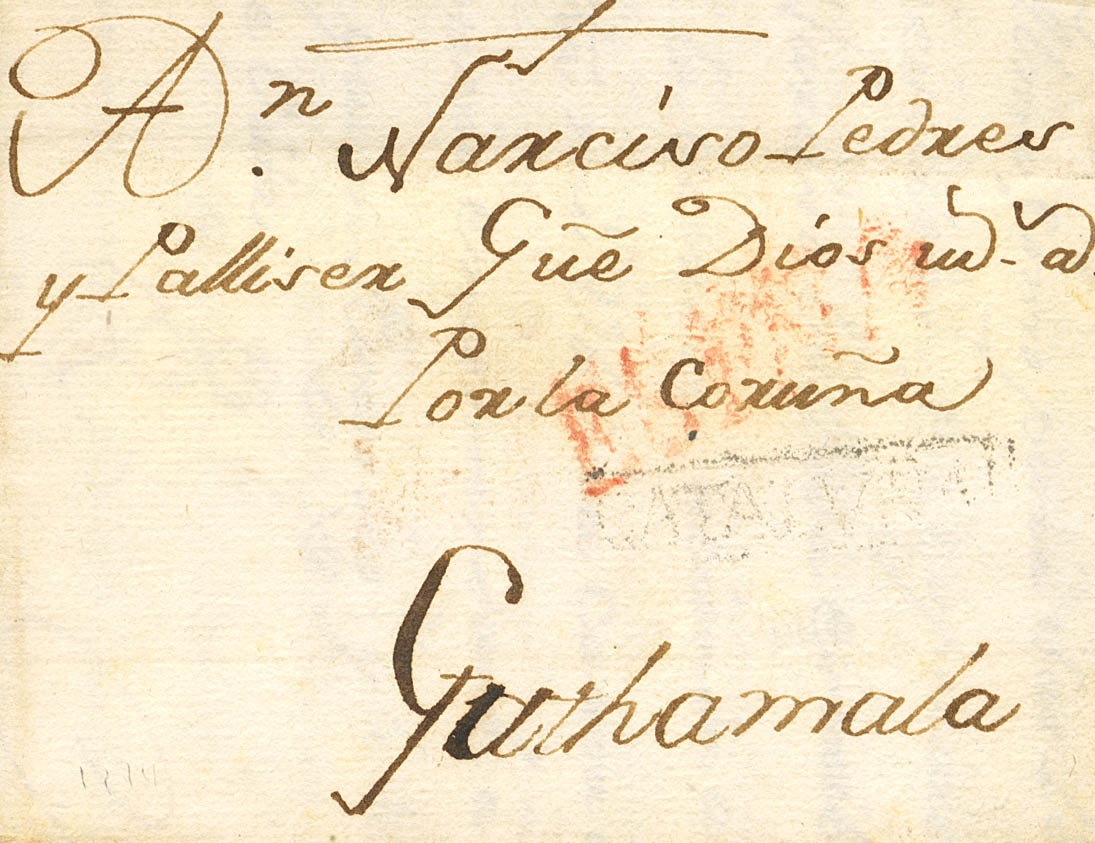 A Dn. Narciso Pedres
y Palliser Gue Dios md. ad.
Por la Coruña
CATALUÑA
Guathamala